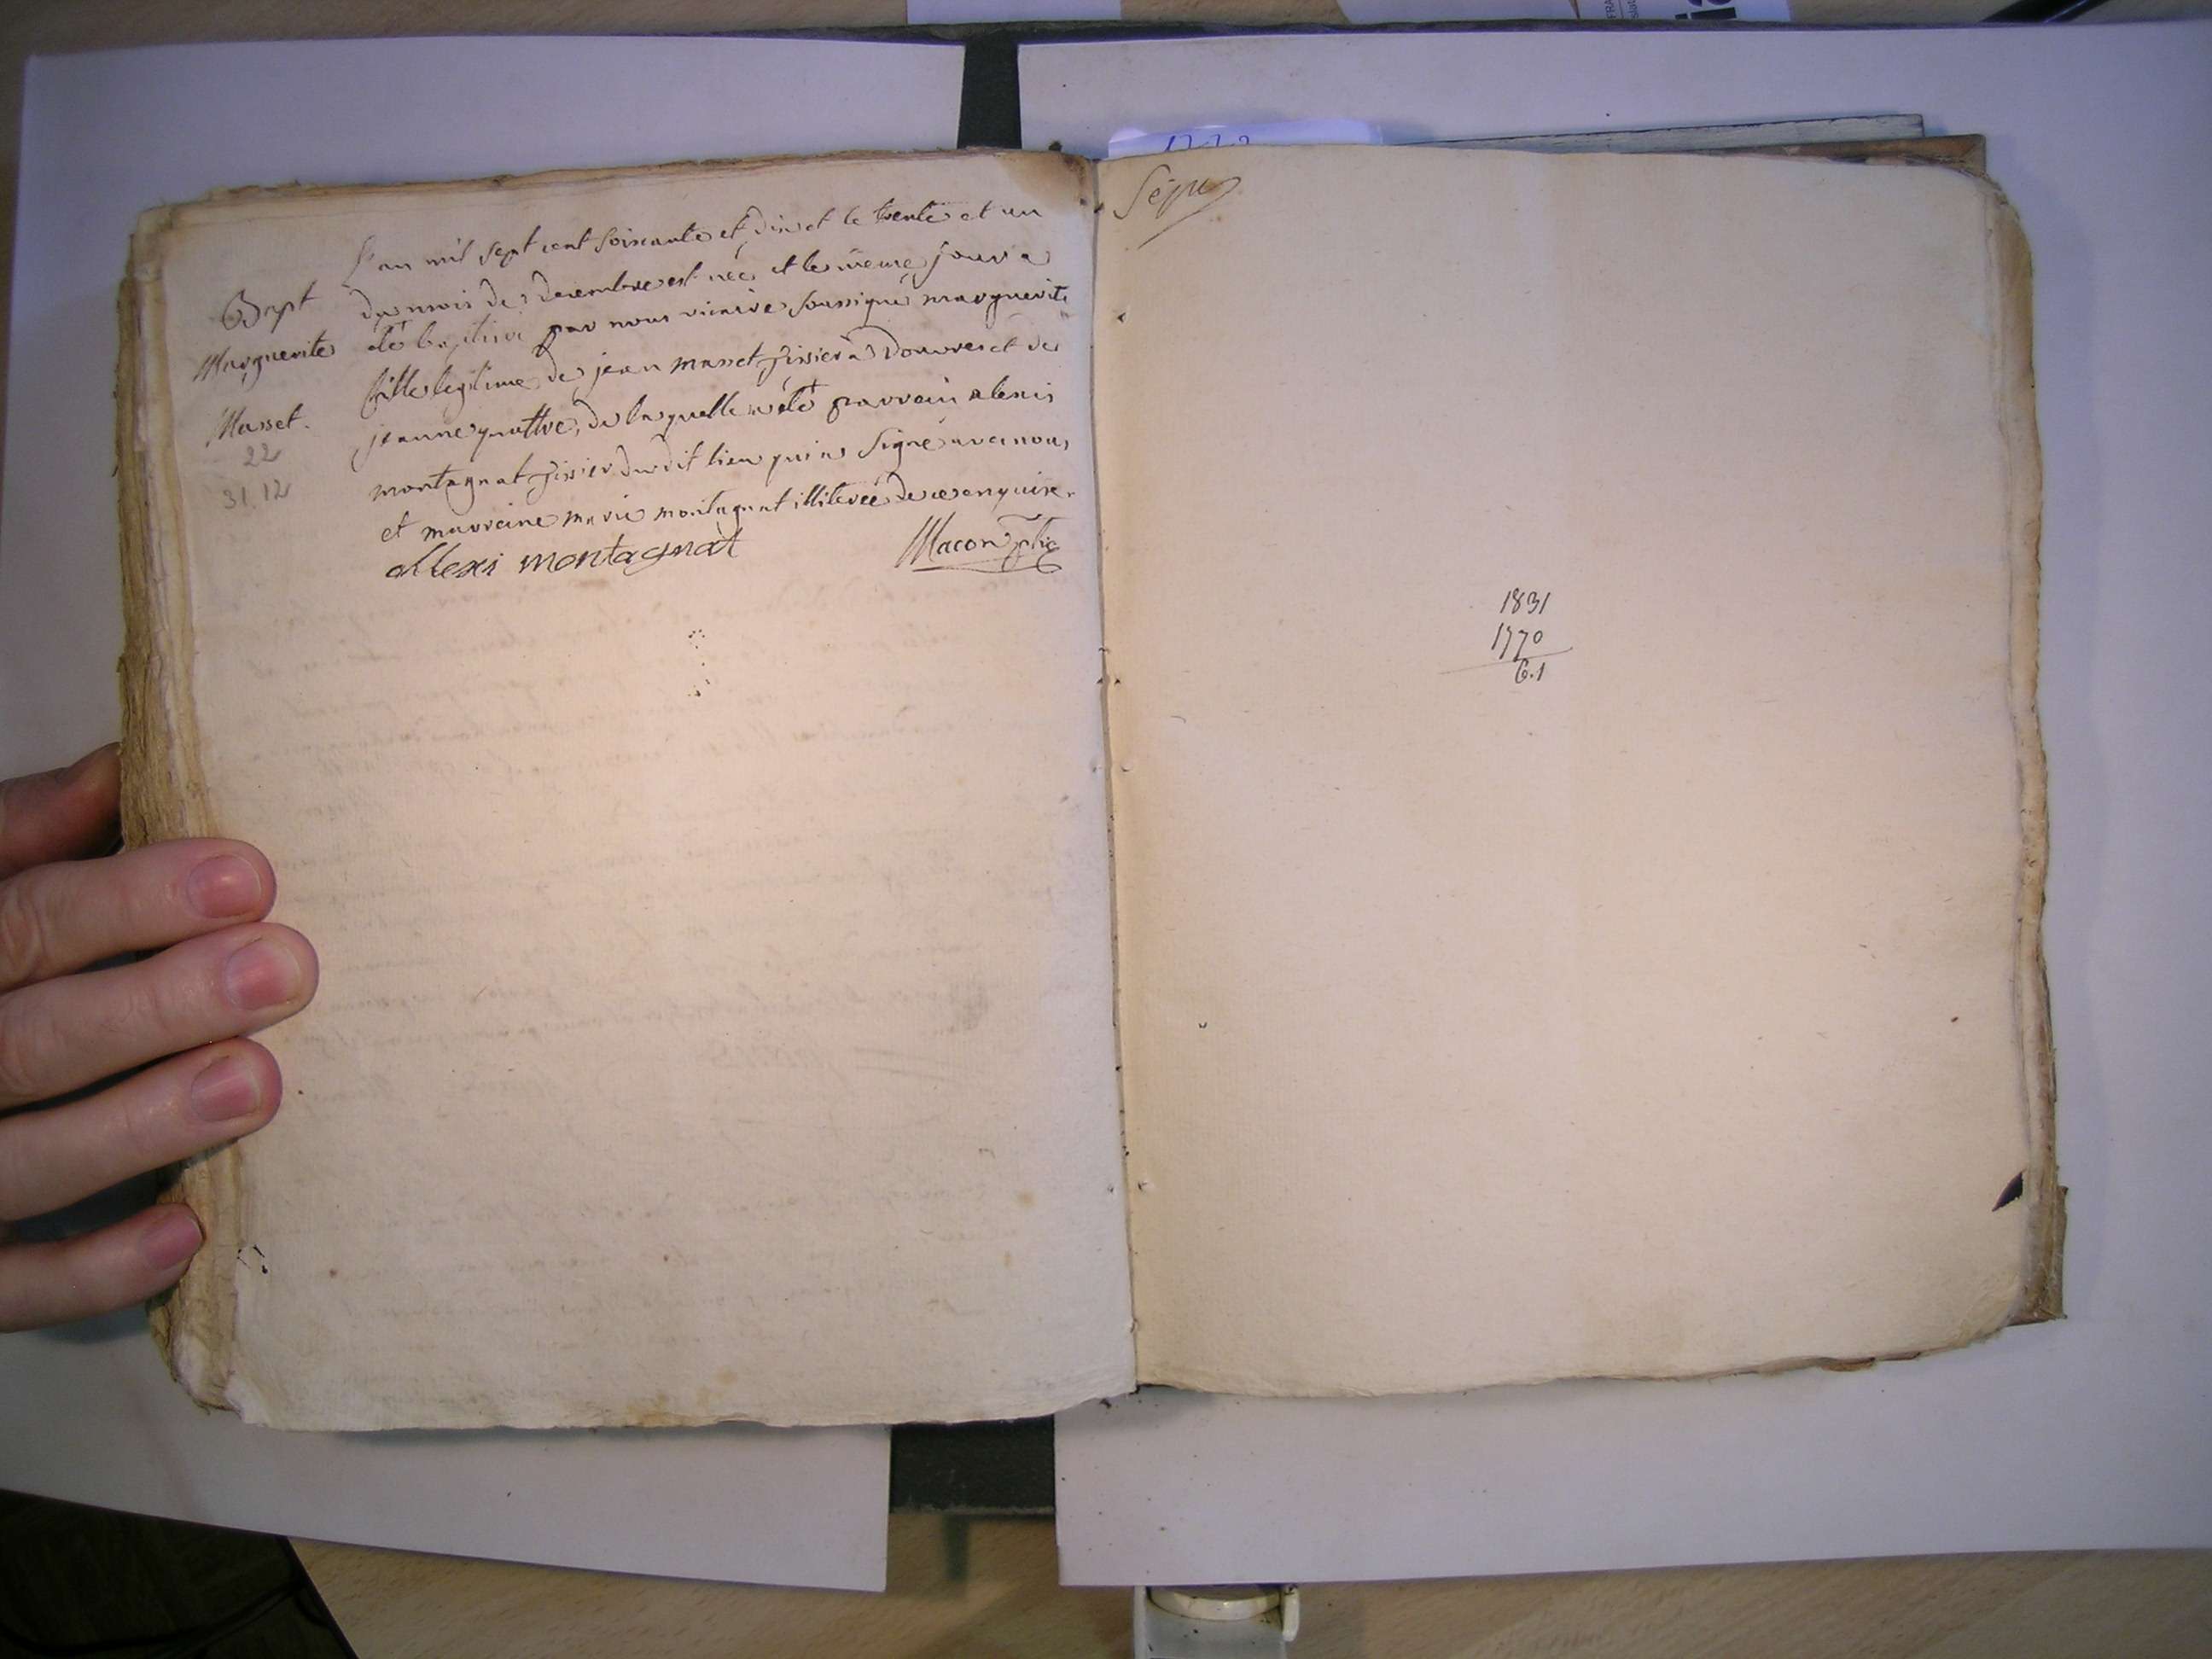 Bapt
Marguerite
Masset.
22
31.12
L'an mil sept cent soixante et dix et le trente et un
du mois de decembre est née et le même jour a
été baptisé par nous vicaire soussigné marguerite
fille legitime de jean masset tissier à Douvres et de
jeanne quattre, de laquelle a été parrain alexis
montagnat tissier du dit lieu qui a signé avec nous
et marraine marie montagnat illiterée de ce enquise.
allexi montagnat
Macon
1831
1770
61